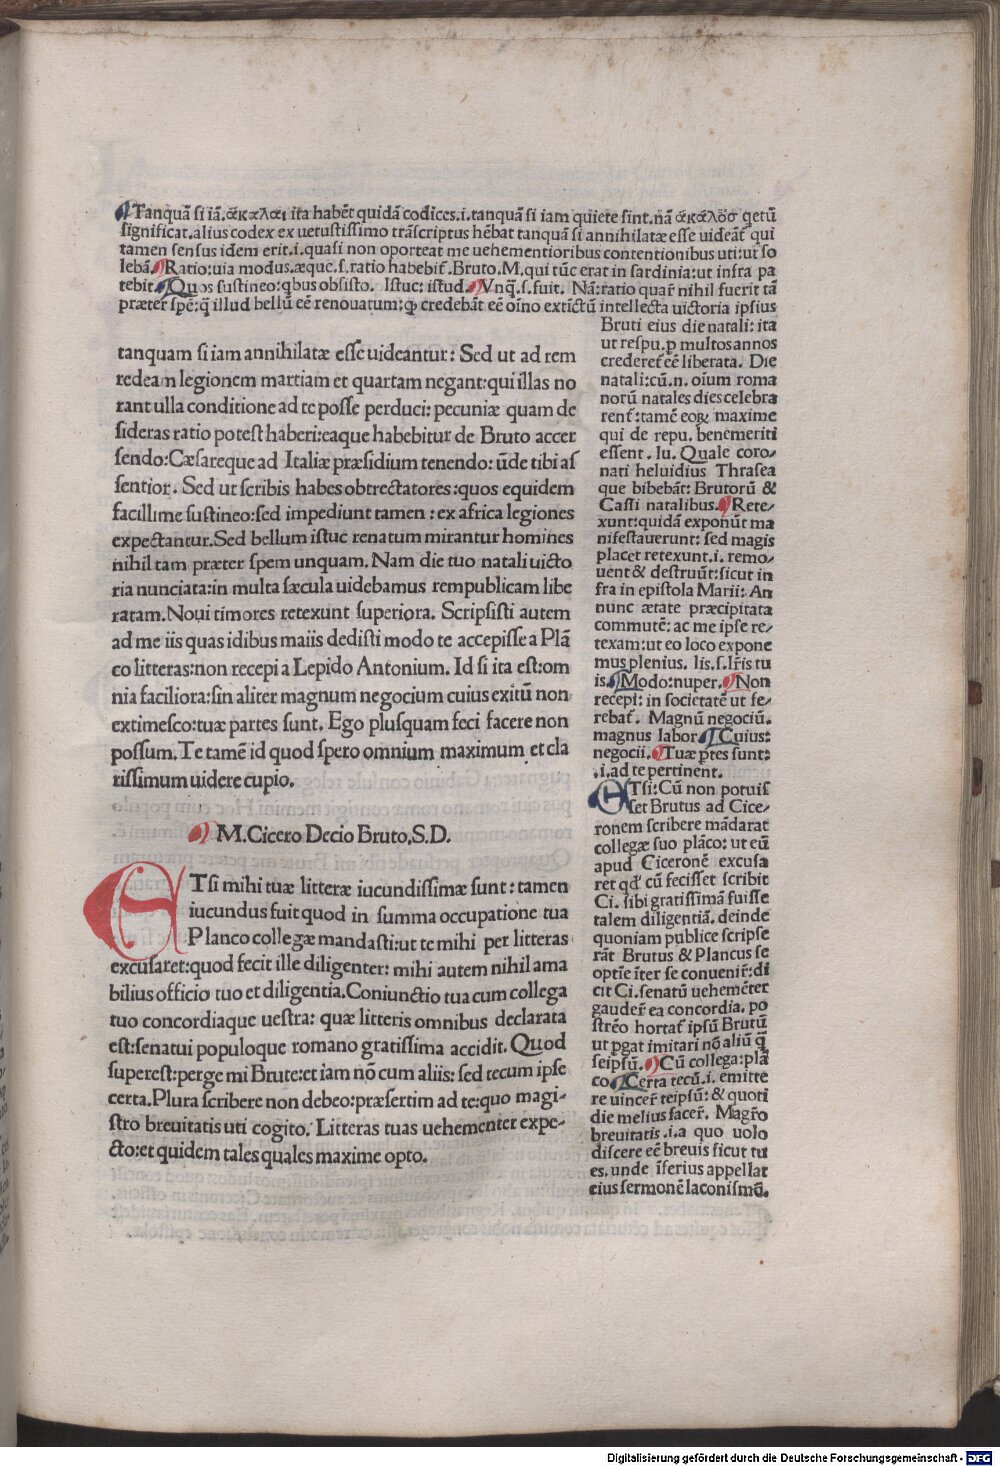 Tanquā si iā. ἄκαλαι ita habēt quidā codices.i.tanquā si iam quiete sint.nā ἀκάλος qetū
significat.alius codex ex uetustissimo trāscriptus hēbat tanquā si annihilatæ esse uideāt̃ qui
tamen sensus idem erit.i.quasi non oporteat me uehementioribus contentionibus uti:ut so
lebā. Ratio:uia modus.æque.s.ratio habebit̃.Bruto.M.qui tūc erat in sardinia:ut infra pa
tebit. Quos sustineo:qbus obsisto. Istuc: istud. Vnq̄.s.fuit. Nā:ratio quar̃ nihil fuerit tā
præter spē:q̄ illud bellū eē renouatum:ꝙ credebāt eē oīno extīctū intellecta uictoria ipsius
tanquam si iam annihilatæ esse uideantur: Sed ut ad rem
redeam legionem martiam et quartam negant:qui illas no
rant ulla conditione ad te posse perduci: pecuniæ quam de
sideras ratio potest haberi:eaque habebitur de Bruto accer
sendo:Cæsareque ad Italiæ præsidium tenendo: ūde tibi as
sentior. Sed ut scribis habes obtrectatores:quos equidem
facillime sustineo:sed impediunt tamen: ex africa legiones
expectantur.Sed bellum istuc renatum mirantur homines
nihil tam præter spem unquam. Nam die tuo natali uicto
ria nunciata:in multa sæcula uidebamus rempublicam libe
ratam. Noui timores retexunt superiora. Scripsisti autem
ad me iis quas idibus maiis dedisti modo te accepisse a Plā
co litteras:non recepi a Lepido Antonium. Id si ita est:om
nia faciliora:sin aliter magnum negocium cuius exitū non
extimesco:tuæ partes sunt. Ego plusquam feci facere non
possum. Te tamē id quod spero omnium maximum et cla
rissimum uidere cupio.
M.Cicero Decio Bruto.S.D.
ETsi mihi tuæ litteræ iucundissimæ sunt: tamen
iucundus fuit quod in summa occupatione tua
Planco collegæ mandasti:ut te mihi per litteras
excusaret:quod fecit ille diligenter: mihi autem nihil ama
bilius officio tuo et diligentia.Coniunctio tua cum collega
tuo concordiaque uestra: quæ litteris omnibus declarata
est:senatui populoque romano gratissima accidit. Quod
superest:perge mi Brute:et iam nō cum aliis: sed tecum ipse
certa.Plura scribere non debeo:præsertim ad te:quo magi-
stro breuitatis uti cogito. Litteras tuas uehementer expe-
cto:et quidem tales quales maxime opto.
Bruti eius die natali: ita
ut respu.p multos annos
crederet̃ eē liberata. Die
natali:cū.n. oīum roma
norū natales dies celebra
rent̃:tamē eoꝝ maxime
qui de repu. benemeriti
essent. Iu. Quale coro-
nati heluidius Thrasea
que bibebāt: Brutorū &
Cassi natalibus. Rete-
xunt:quidā exponūt ma
nifestauerunt: sed magis
placet retexunt.i. remo-
uent & destruūt:sicut in
fra in epistola Marii: An
nunc ætate præcipitata
commutē: ac me ipse re-
texam:ut eo loco expone
mus plenius. Iis.s.lr̄is tu
is. Modo:nuper. Non
recepi: in societatē ut fe-
rebat̃. Magnū negociū.
magnus labor Cuius:
negocii. Tuæ ptes sunt:
.i.ad te pertinent.
ETsi: Cū non potuis
set Brutus ad Cice-
ronem scribere mādarat
collegæ suo plāco: ut eū
apud Ciceronē excusa
ret qđ cū fecisset scribit
Ci. sibi gratissimā fuisse
talem diligentiā. deinde
quoniam publice scripse
rāt Brutus & Plancus se
optīe īter se conuenir̃:di
cit Ci.senatū uehemēter
gauder̃ ea concordia. po
strēo hortat̃ ipsū Brutū
ut pgat imitari nō aliū q̄
seipsū. Cū collega:plā
co. Certa tecū.i. emitte
re uincer̃ teipsū: & quoti
die melius facer̃. Magr̄o
breuitatis.i.a quo uolo
discere eē breuis sicut tu
es. unde īferius appellat
eius sermonē laconismō.
Digitalisierung gefördert durch die Deutsche Forschungsgemeinschaft - DFG